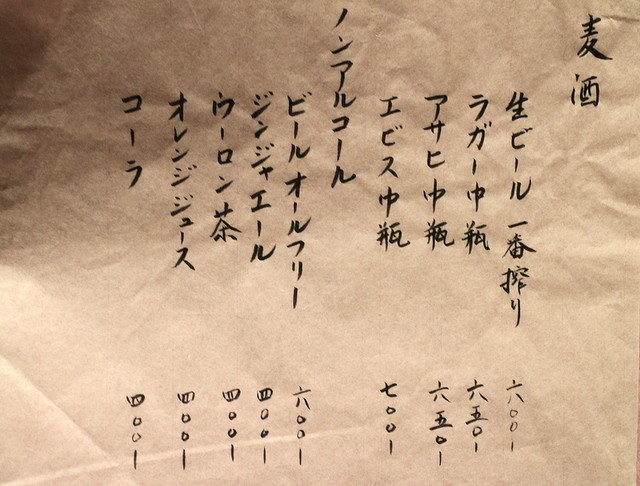 麦酒
生ビール 一番搾り 六〇〇ー
ラガー中瓶 六五〇ー
アサヒ中瓶 六五〇ー
エビス中瓶 七〇〇ー
ノンアルコール
ビール オールフリー 六〇〇ー
ジンジャエール 四〇〇ー
ウーロン茶 四〇〇ー
オレンジジュース 四〇〇ー
コーラ 四〇〇ー